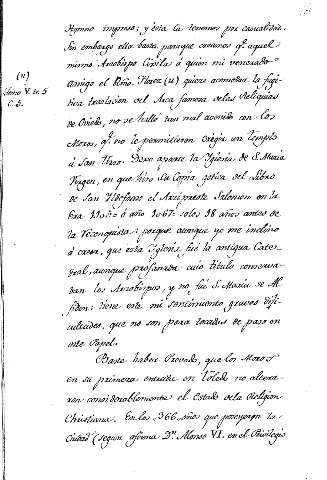 Hymno impreso; y esta la tenemos por casualidad.
Sin embargo ella basta para que creamos q.e aquel
mismo Arzobispo Cixila á quien mi venerado
Amigo el Rmo. Florez (u) quiere acomodar la fugi-
tiva traslacion del Arca famosa de las Reliquias
de Oviedo, no se halló tan mal avenido con los
Moros, q.e no le permitieron erigir un Templo
á San Tirso. Dexo aparte la Yglesia de S. Maria
Virgen, en que hizo su Copia gotica del Libro
de San Yldefonso el Arcipreste Salomon en la
Era 1105 ó año 1067 solos 18 años antes de
la Reconquista: porque aunque yo me inclino
á creer, que esta Yglesia fué la antigua Cate-
dral, aunque profanada cuio titulo conserva-
ban los Arzobispos, y no fué S. Maria de Al-
ficen: tiene este mi sentimiento graves difi-
cultades, que no son para tocadas de paso en
este Papel.
Baste haber Provado, que los Moros
en su primera entrada en Toledo no altera-
ron considerablemente el Estado de la Religion
Christiana. En los 366 años que poseyeron la
Ciudad (segun afirma Dn. Alonso VI. en el Privilegio
(u)
Tomo V. tr. 5
C. 5.